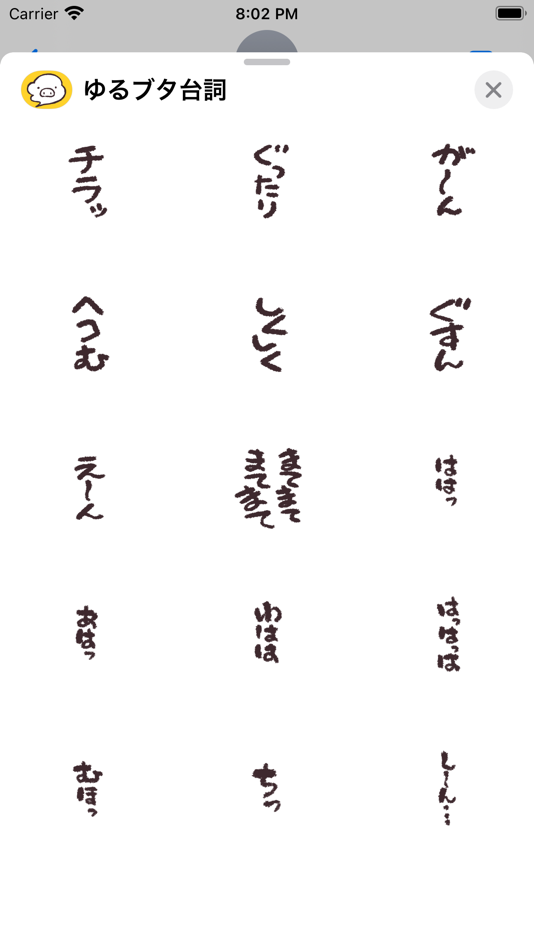 Carrier 8:02 PM
ゆるブタ台詞
チラッ
ぐったり
が〜ん
へつむ
しくしく
ぐすん
え〜ん
まてまて
まてまて
ははっ
あはっ
わはは
はっはっは
むほっ
ちっ
し〜ん…